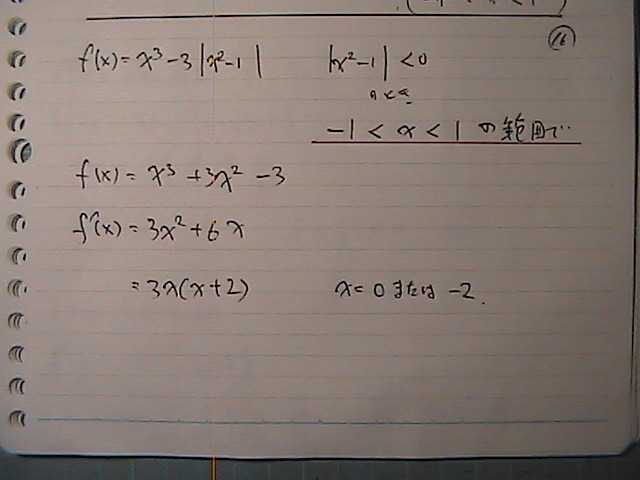 ⑯
f(x) = x³ - 3|x²-1| |x²-1| < 0
-1 < x < 1 の範囲で
f(x) = x³ + 3x² - 3
f'(x) = 3x² + 6x
= 3x(x+2) x = 0 または -2.